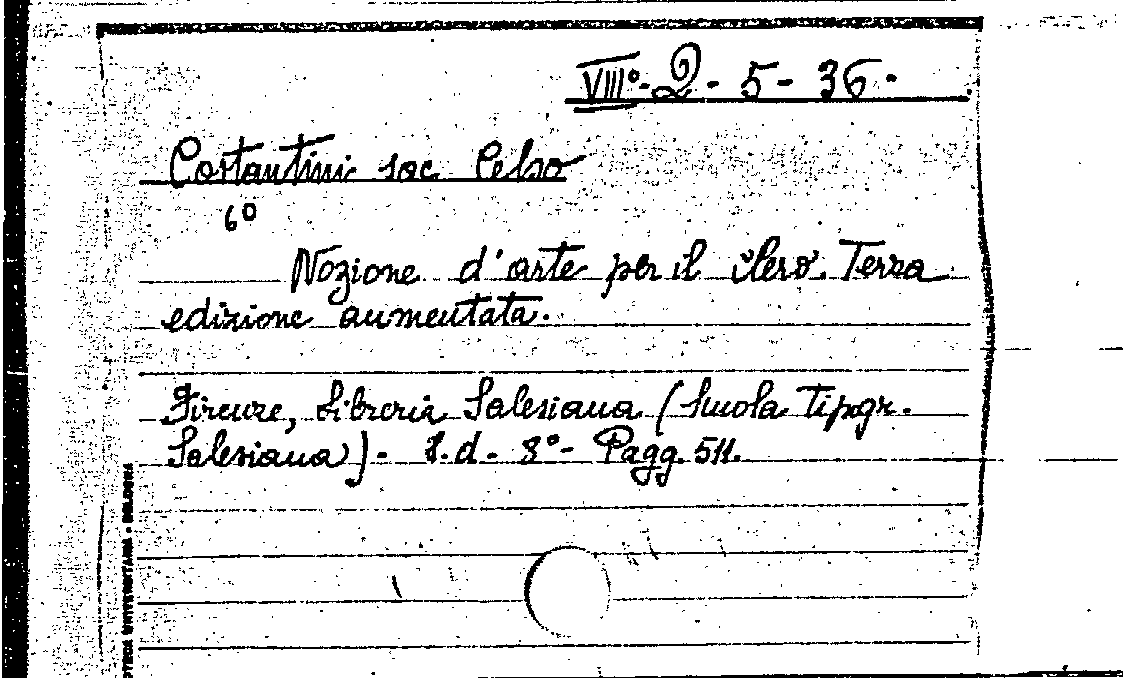 VIII°. 2 - 5 - 36.
Costantini sac. Celso
6°
Nozione d'arte per il clero. Terza
edizione aumentata.
Firenze, Libreria Salesiana (Scuola Tipogr.
Salesiana) - S. d. - 8° - Pagg. 511.
OTECA UNIVERSITARIA - BOLOGNA